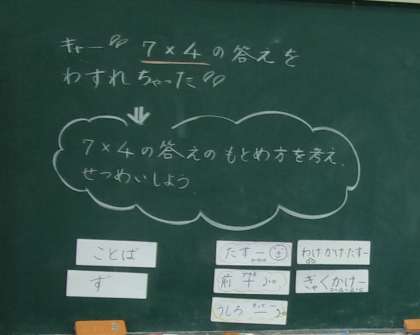 キャー 7×4の答えを
わすれちゃった
7×4の答えのもとめ方を考え、
せつめいしよう。
ことば
ず
たすー
わけ・かけ・たすー
前 +
ぎゃくかけー
うしろ ー